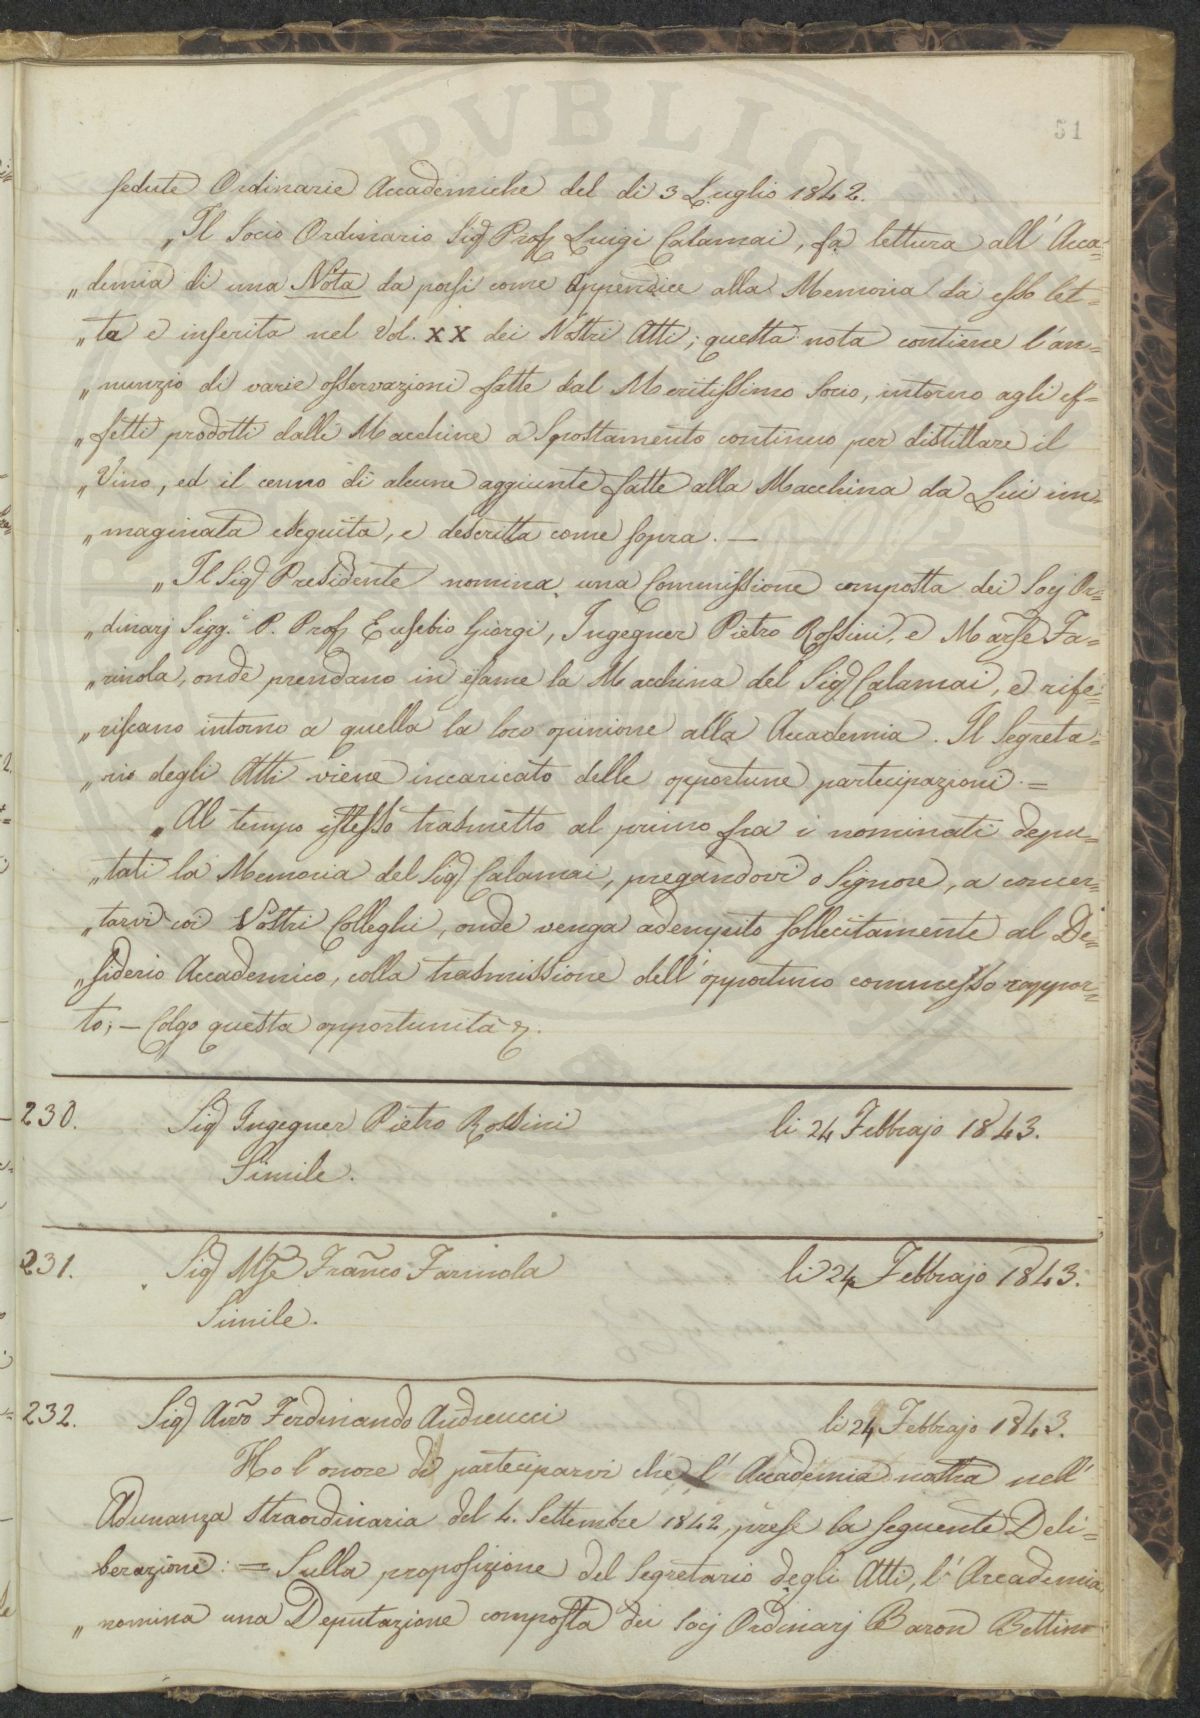 51
sedute Ordinarie Accademiche del di 3 Luglio 1842.
„Il Socio Ordinario Sig. Prof. Luigi Calamai, fa lettura all' Acca=
„demia di una Nota da porsi come appendice alla Memoria da esso let=
„ta e inserita nel Vol. XX dei Nostri Atti; questa nota contiene l'an=
„nunzio di varie osservazioni fatte dal Meritissimo Socio, intorno agli ef=
„fetti prodotti dalle Macchine a Spostamento continuo per distillare il
„Vino, ed il cenno di alcune aggiunte fatte alla Macchina da Lui im=
„maginata eseguita, e descritta come sopra. —
„Il Sig. Presidente nomina una Commissione composta dei Socj Or=
„dinarj Sigg.i P. Prof. Eusebio Giorgi, Ingegner Pietro Rossini, e Marse Fa=
„rinola, onde prendano in esame la Macchina del Sig. Calamai, e rife=
„riscano intorno a quella la loro opinione alla Accademia. Il Segreta=
„rio degli Atti viene incaricato delle opportune partecipazioni. =
„Al tempo istesso trasmetto al primo fra i nominati depu=
„tati la Memoria del Sig. Calamai, pregandovi o Signore, a concer=
„tarvi coi Vostri Colleghi, onde venga adempito sollecitamente al De=
„siderio Accademico, colla trasmissione dell' opportuno commesso rappor=
to; — Colgo questa opportunità &.
230. Sig. Ingegner Pietro Rossini li 24 Febbrajo 1843.
Simile.
231. Sig. Mse Franco Farinola li 24 Febbrajo 1843.
Simile.
232. Sig. Avvo Ferdinando Andreucci li 24 Febbrajo 1843.
Ho l'onore di parteciparvi che l' Accademia nostra nell'
Adunanza straordinaria del 4. Settembre 1842, prese la seguente Deli=
berazione: = Sulla proposizione del Segretario degli Atti, l' Accademia
„ nomina una Deputazione composta dei Socj Ordinarj Baron Bettino